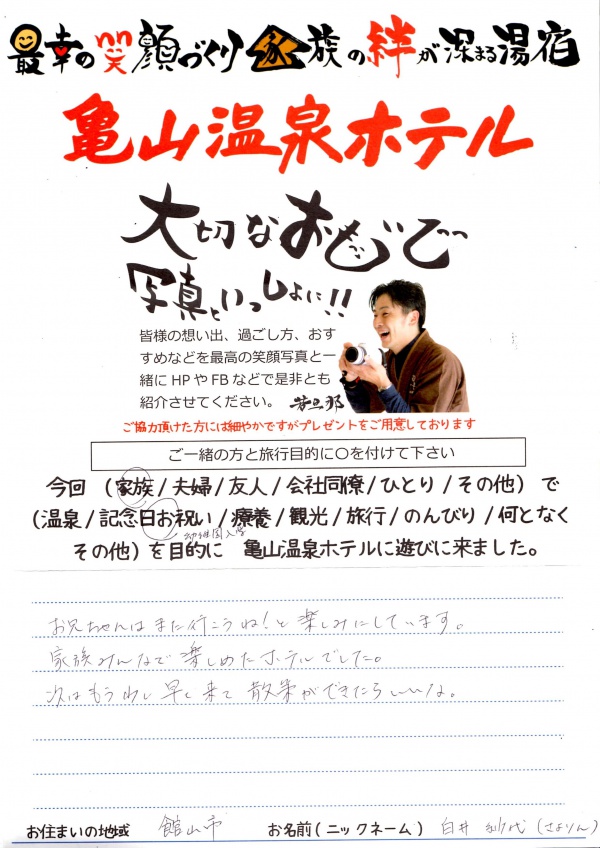 最幸の笑顔づくり 家族の絆が深まる湯宿
亀山温泉ホテル
大切なおもいで
写真といっしょに!!
皆様の想い出、過ごし方、おす
すめなどを最高の笑顔写真と一
緒にHPやFBなどで是非とも
紹介させてください。 若旦那
ご協力頂けた方には細やかですがプレゼントをご用意しております
ご一緒の方と旅行目的に〇を付けて下さい
今回 (家族/夫婦/友人/会社同僚/ひとり/その他) で
(温泉/記念日お祝い/療養/観光/旅行/のんびり/何となく
幼稚園入学
その他) を目的に 亀山温泉ホテルに遊びに来ました。
お兄ちゃんはまた行こうね!と楽しみにしています。
家族みんなで楽しめたホテルでした。
次はもう少し早く来て散策ができたらいいな。
お住まいの地域 館山市 お名前(ニックネーム) 白井 紗代 (さよりん)